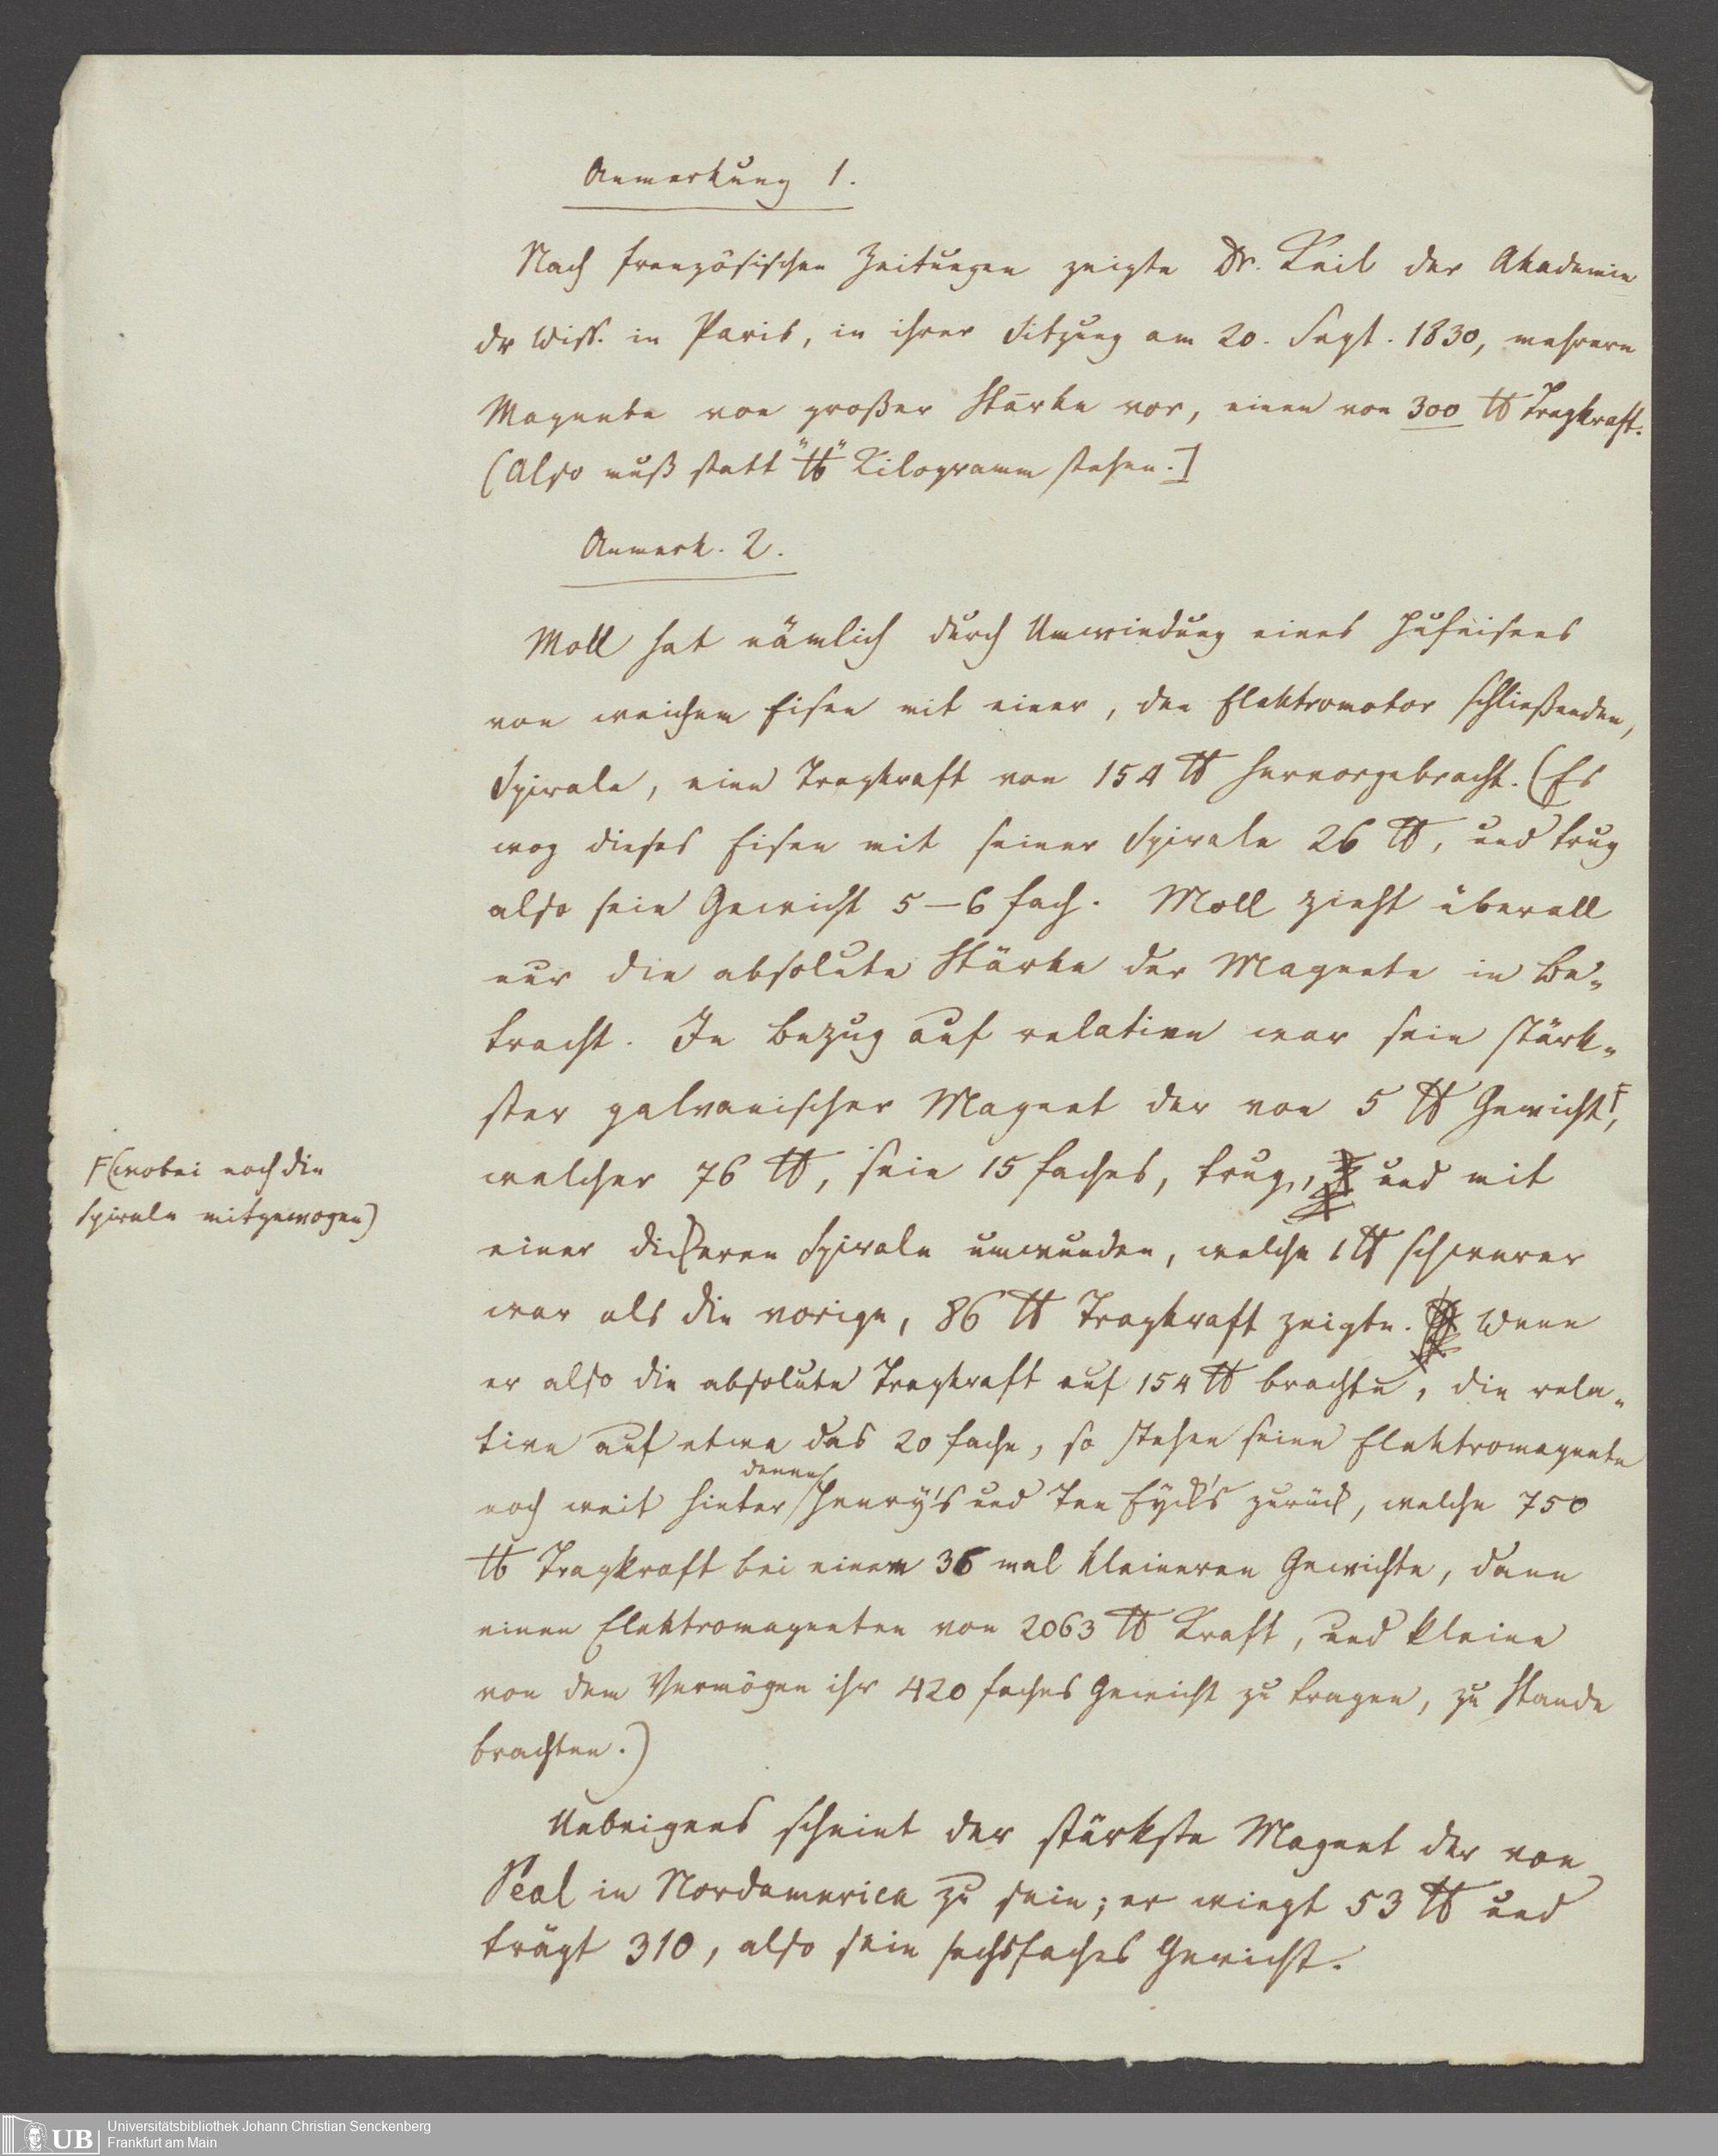 Anmerkung 1.
Nach französischen Zeitungen zeigte Dr. Keil der Akademie
dr Wiss. in Paris, in ihrer Sitzung am 20. Sept. 1830, mehrere
Magnete von großer Stärke vor, einen von 300 ℔ Tragkraft.
(Also muß statt "℔" Kilogramm stehen.]
Anmerk. 2.
Moll hat nämlich durch Umwindung eines Hufeisens
von weichem Eisen mit einer, den Elektromotor schließenden,
Spirale, eine Tragkraft von 154 ℔ hervorgebracht. (Es
wog dieses Eisen mit seiner Spirale 26 ℔, und trug
also sein Gewicht 5–6 fach. Moll zieht überall
nur die absolute Stärke der Magnete in Be-
tracht. In Bezug auf relative war sein stärk-
ster galvanischer Magnet der von 5 ℔ Gewicht F,
F (wobei noch die
Spirale mitgewogen)
welcher 76 ℔, sein 15 faches, trug, und mit
einer dickeren Spirale umwunden, welche 1 ℔ schwerer
war als die vorige, 86 ℔ Tragkraft zeigte. Wenn
er also die absolute Tragkraft auf 154 ℔ brachte, die rela-
tive auf etwa das 20 fache, so stehen seine Elektromagnete
noch weit hinter denen Henry's und Ten Eyck's zurück, welche 750
℔ Tragkraft bei einem 36 mal kleineren Gewichte, dann
einen Elektromagneten von 2063 ℔ Kraft, und kleine
von dem Vermögen ihr 420 faches Gewicht zu tragen, zu Stande
brachten.)
Uebrigens scheint der stärkste Magnet der von
Peal in Nordamerica zu sein; er wiegt 53 ℔ und
trägt 310, also sein sechsfaches Gewicht.
UB
Universitätsbibliothek Johann Christian Senckenberg
Frankfurt am Main